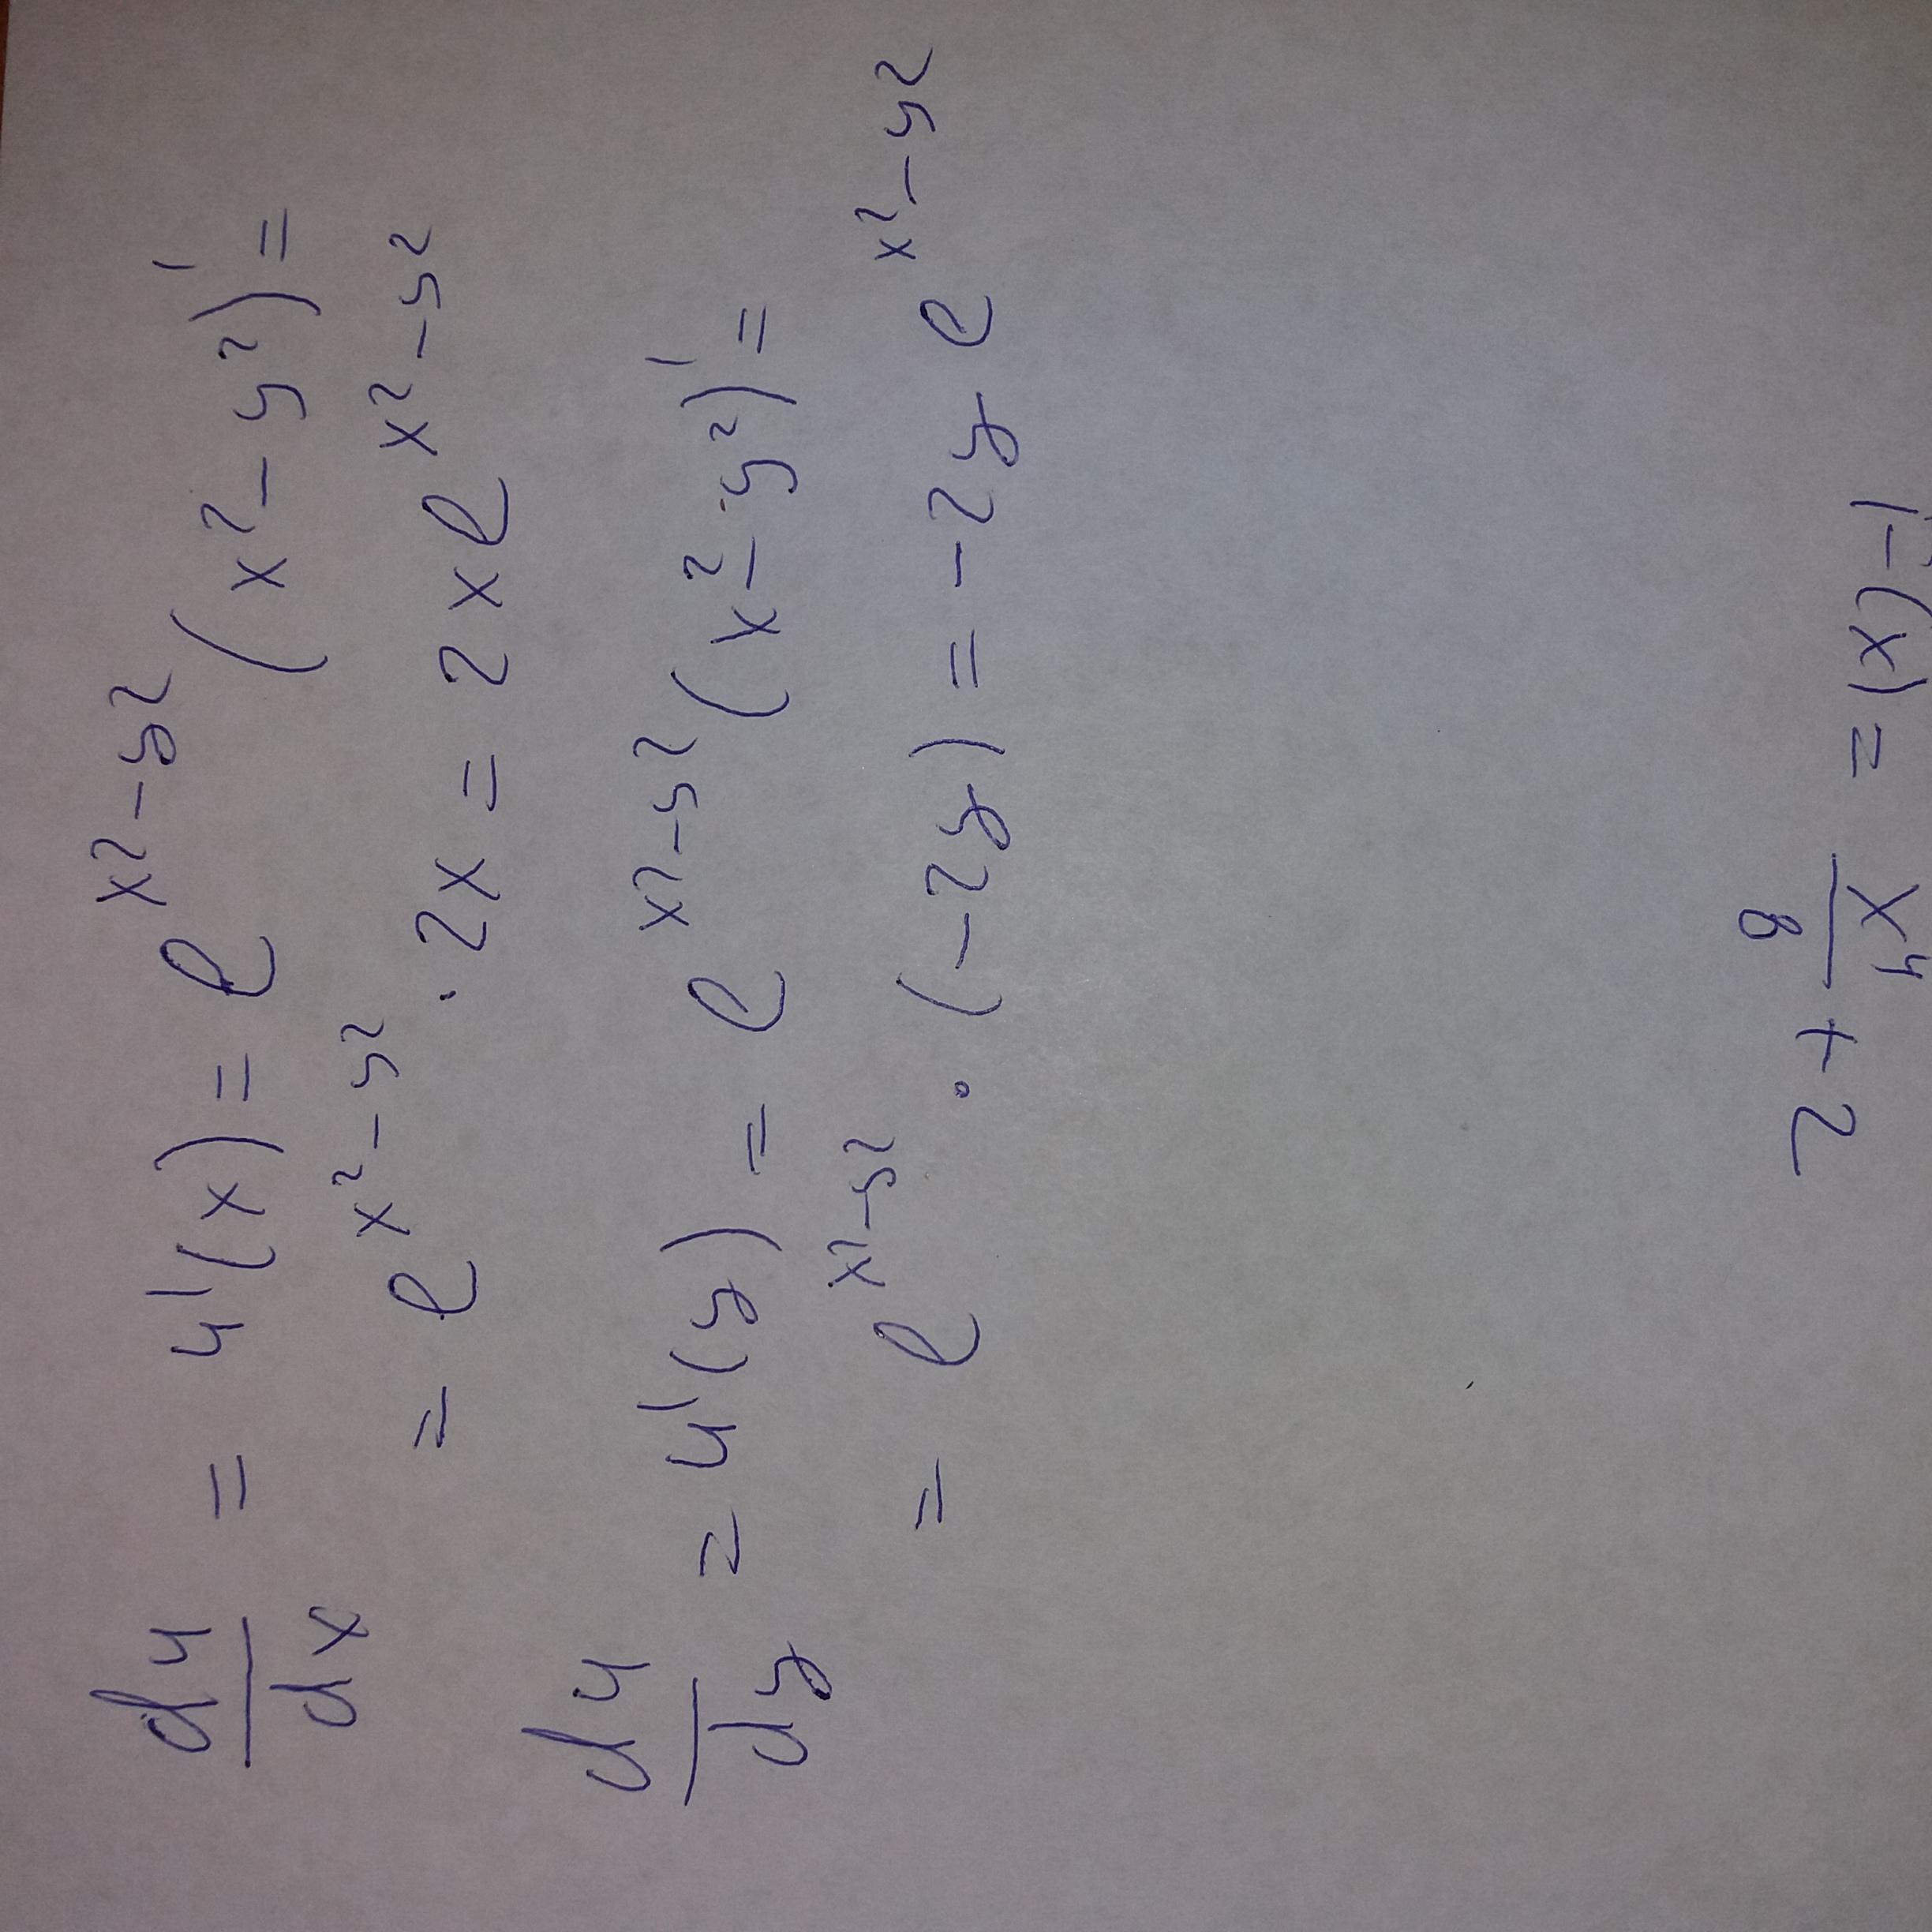 du/dx = u'(x) = e^(x²-y²) (x²-y²)' =
= e^(x²-y²) · 2x = 2x e^(x²-y²)
du/dy = u'(y) = e^(x²-y²) (x²-y²)' =
= e^(x²-y²) · (-2y) = -2y e^(x²-y²)
(x) = x⁴/8 + 2